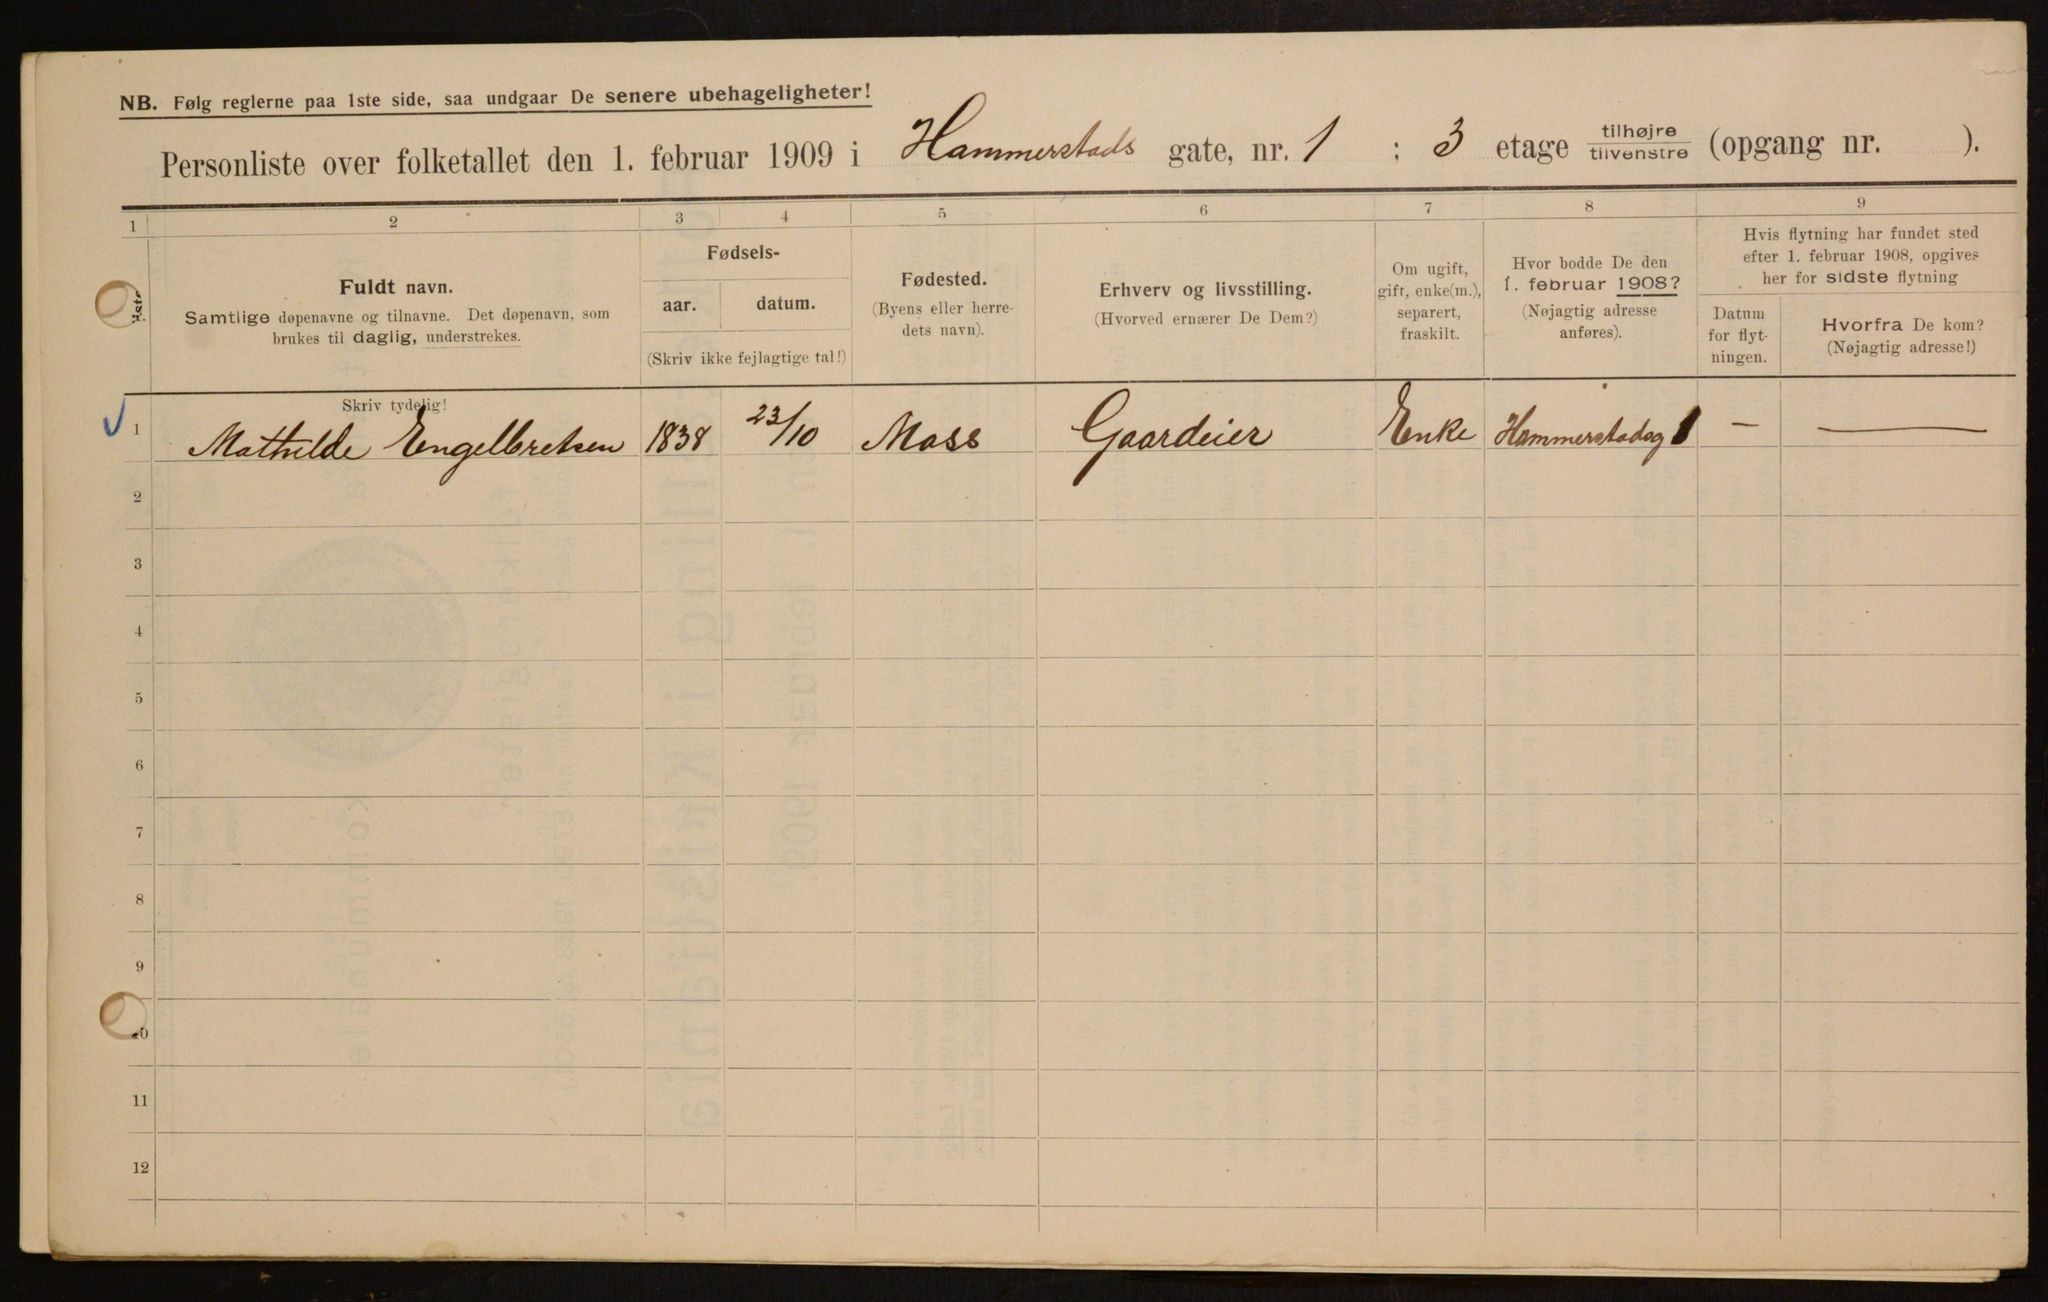 NB. Følg reglerne paa 1ste side, saa undgaar De senere ubehageligheter!
Personliste over folketallet den 1. februar 1909 i Hammerstads gate, nr. 1 : 3 etage tilhøjre / tilvenstre (opgang nr. ).
1 2 3 4 5 6 7 8 9
Fuldt navn.
Samtlige døpenavne og tilnavne. Det døpenavn, som
brukes til daglig, understrekes.
Skriv tydelig!
Fødsels-
aar. datum.
(Skriv ikke fejlagtige tal!)
Fødested.
(Byens eller herre-
dets navn).
Erhverv og livsstilling.
(Hvorved ernærer De Dem?)
Om ugift,
gift, enke(m.),
separert,
fraskilt.
Hvor bodde De den
1. februar 1908?
(Nøjagtig adresse
anføres).
Hvis flytning har fundet sted
efter 1. februar 1908, opgives
her for sidste flytning
Datum
for flyt-
ningen.
Hvorfra De kom?
(Nøjagtig adresse!)
1 Mathilde Engelbretsen 1838 23/10 Moss Gaardeier Enke Hammerstadsg 1 — —
2
3
4
5
6
7
8
9
10
11
12